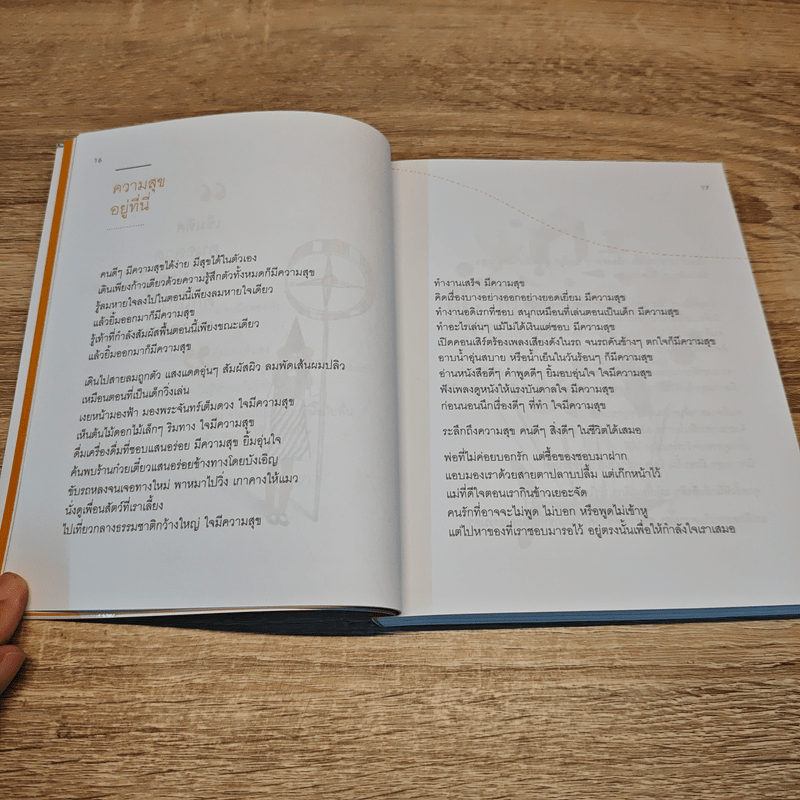 16
ความสุข
อยู่ที่นี่
คนดีๆ มีความสุขได้ง่าย มีสุขได้ในตัวเอง
เดินเพียงก้าวเดียวด้วยความรู้สึกตัวทั้งหมดก็มีความสุข
รู้ลมหายใจลงไปในตอนนี้เพียงลมหายใจเดียว
แล้วยิ้มออกมาก็มีความสุข
รู้เท้าที่กำลังสัมผัสพื้นตอนนี้เพียงขณะเดียว
แล้วยิ้มออกมาก็มีความสุข
เดินไปสายลมถูกตัว แสงแดดอุ่นๆ สัมผัสผิว ลมพัดเส้นผมปลิว
เหมือนตอนที่เป็นเด็กวิ่งเล่น
เงยหน้ามองฟ้า มองพระจันทร์เต็มดวง ใจมีความสุข
เห็นต้นไม้ดอกไม้เล็กๆ ริมทาง ใจมีความสุข
ดื่มเครื่องดื่มที่ชอบแสนอร่อย มีความสุข ยิ้มอุ่นใจ
ค้นพบร้านก๋วยเตี๋ยวแสนอร่อยข้างทางโดยบังเอิญ
ขับรถหลงจนเจอทางใหม่ พาหมาไปวิ่ง เกาคางให้แมว
นั่งดูเพื่อนสัตว์ที่เราเลี้ยง
ไปเที่ยวกลางธรรมชาติกว้างใหญ่ ใจมีความสุข
17
ทำงานเสร็จ มีความสุข
คิดเรื่องบางอย่างออกอย่างยอดเยี่ยม มีความสุข
ทำงานอดิเรกที่ชอบ สนุกเหมือนที่เล่นตอนเป็นเด็ก มีความสุข
ทำอะไรเล่นๆ แม้ไม่ได้เงินแต่ชอบ มีความสุข
เปิดคอนเสิร์ตร้องเพลงเสียงดังในรถ จนรถคันข้างๆ ตกใจก็มีความสุข
อาบน้ำอุ่นสบาย หรือน้ำเย็นในวันร้อนๆ ก็มีความสุข
อ่านหนังสือดีๆ คำพูดดีๆ ยิ้มอบอุ่นใจ ใจมีความสุข
ฟังเพลงดูหนังให้แรงบันดาลใจ มีความสุข
ก่อนนอนนึกเรื่องดีๆ ที่ทำ ใจมีความสุข
ระลึกถึงความสุข คนดีๆ สิ่งดีๆ ในชีวิตได้เสมอ
พ่อที่ไม่ค่อยบอกรัก แต่ซื้อของชอบมาฝาก
แอบมองเราด้วยสายตาปลาบปลื้ม แต่เก๊กหน้าไว้
แม่ที่ดีใจตอนเรากินข้าวเยอะจัด
คนรักที่อาจจะไม่พูด ไม่บอก หรือพูดไม่เข้าหู
แต่ไปหาของที่เราชอบมารอไว้ อยู่ตรงนั้นเพื่อให้กำลังใจเราเสมอ